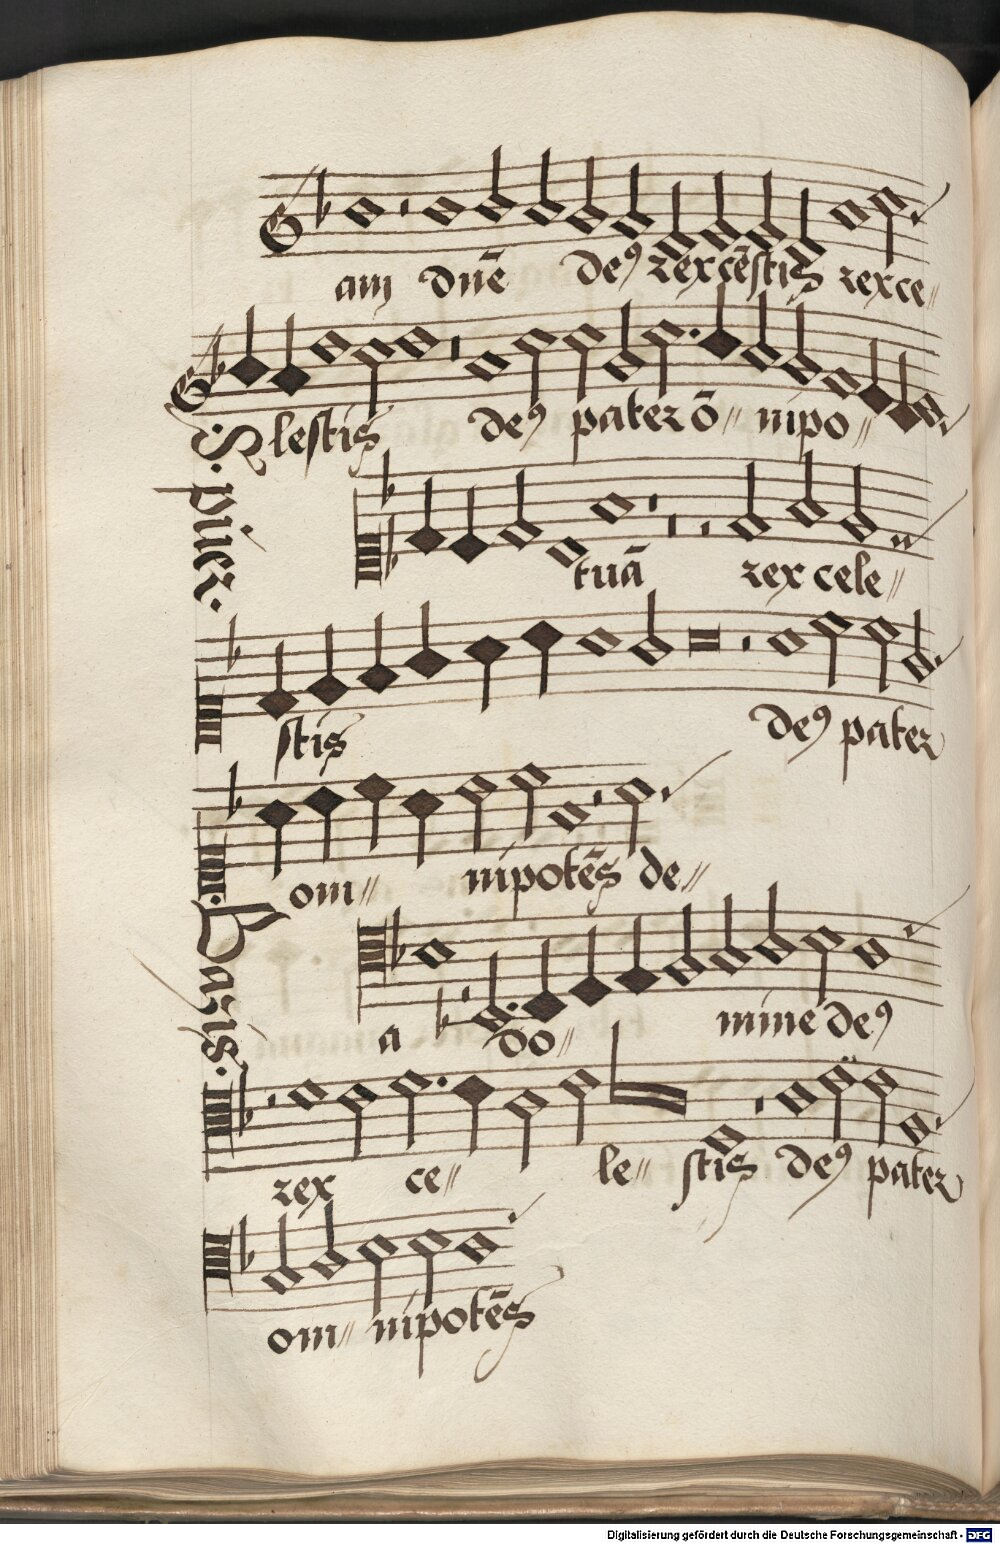 am dn̄e de⁹ rex cēstis rex ce〃
lestis de⁹ pater ō〃 nipo〃
S. puer.
tuā rex cele〃
stis de⁹ pater
om〃 nipotēs de〃
Basis.
a do〃 mine de⁹
rex ce〃 le〃 stis de⁹ pater
om〃 nipotēs
Digitalisierung gefördert durch die Deutsche Forschungsgemeinschaft - DFG